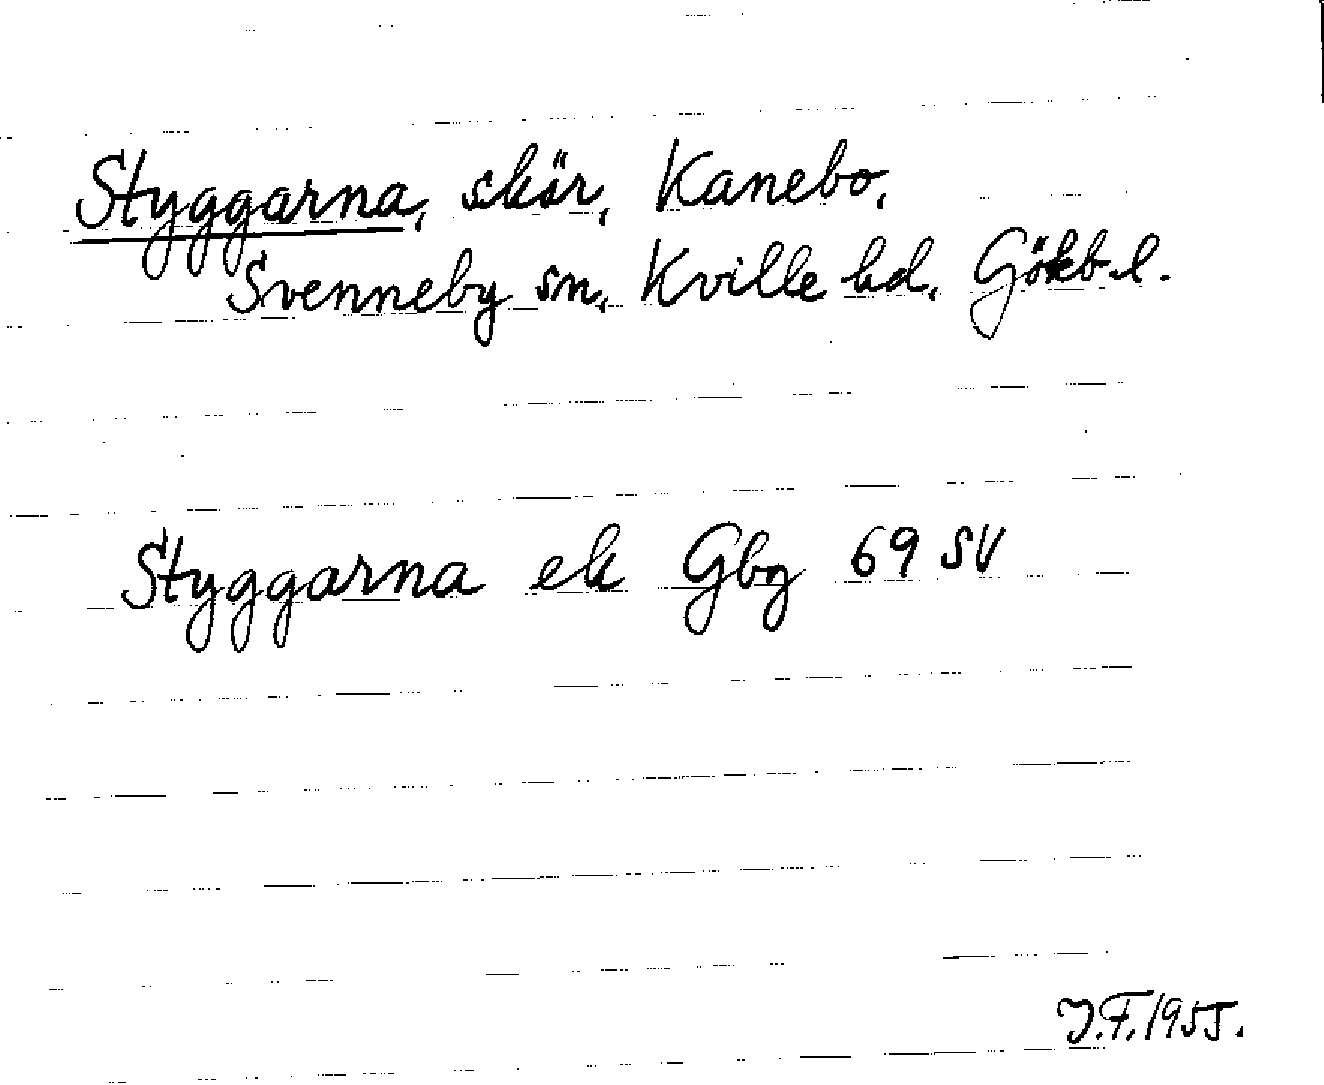 Styggarna, skär, Kanebo,
Svenneby sn, Kville hd, Gökb.l.
Styggarna ek Gbg 69 SV
J.F. 1955.